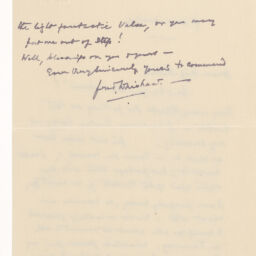 the light fantastic Valse, or you may
put me out of step!
Well, blessings on you
Ever Very Sincerely Yours to command
Fred.